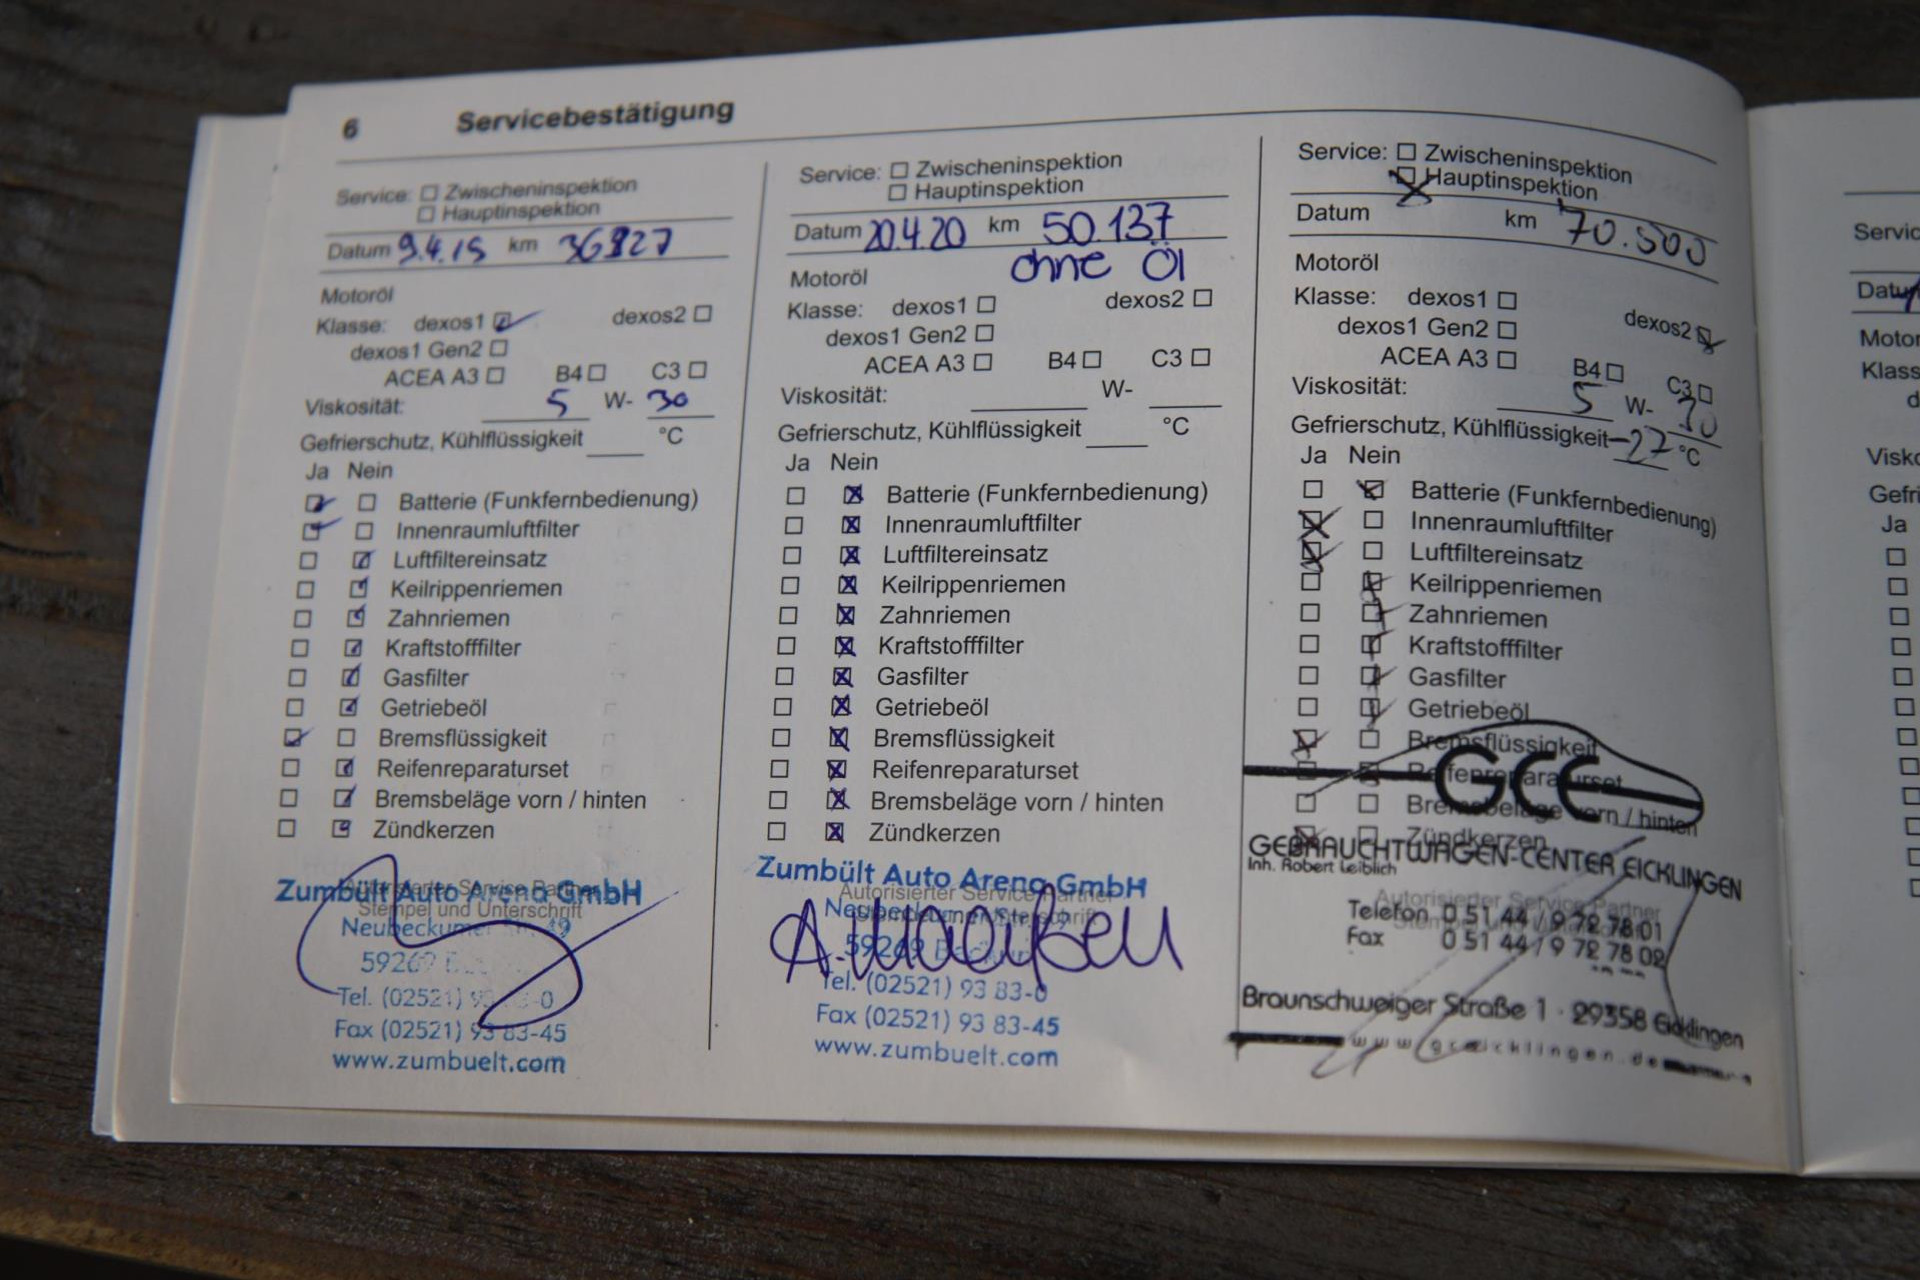 6 Servicebestätigung
Service: Zwischeninspektion
Hauptinspektion
Datum 9.4.19 km 36827
Motoröl
Klasse: dexos1 dexos2
dexos1 Gen2
ACEA A3 B4 C3
Viskosität: 5 W- 30
Gefrierschutz, Kühlflüssigkeit °C
Ja Nein
Batterie (Funkfernbedienung)
Innenraumluftfilter
Luftfiltereinsatz
Keilrippenriemen
Zahnriemen
Kraftstofffilter
Gasfilter
Getriebeöl
Bremsflüssigkeit
Reifenreparaturset
Bremsbeläge vorn / hinten
Zündkerzen
Zumbült Auto Arena GmbH
Autorisierter Service Partner
Stempel und Unterschrift
Neubeckumer 49
Tel. (02521) 93 83-0
Fax (02521) 93 83-45
www.zumbuelt.com
Service: Zwischeninspektion
Hauptinspektion
Datum 20.4.20 km 50.137
Motoröl ohne Öl
Klasse: dexos1 dexos2
dexos1 Gen2
ACEA A3 B4 C3
Viskosität: W-
Gefrierschutz, Kühlflüssigkeit °C
Ja Nein
Batterie (Funkfernbedienung)
Innenraumluftfilter
Luftfiltereinsatz
Keilrippenriemen
Zahnriemen
Kraftstofffilter
Gasfilter
Getriebeöl
Bremsflüssigkeit
Reifenreparaturset
Bremsbeläge vorn / hinten
Zündkerzen
Zumbült Auto Arena GmbH
Autorisierter Service Partner
59269
Tel. (02521) 93 83-0
Fax (02521) 93 83-45
www.zumbuelt.com
Service: Zwischeninspektion
Hauptinspektion
Datum km 70.500
Motoröl
Klasse: dexos1 dexos2
dexos1 Gen2
ACEA A3 B4 C3
Viskosität: 5 W- 30
Gefrierschutz, Kühlflüssigkeit -27 °C
Ja Nein
Batterie (Funkfernbedienung)
Innenraumluftfilter
Luftfiltereinsatz
Keilrippenriemen
Zahnriemen
Kraftstofffilter
Gasfilter
Getriebeöl
Bremsflüssigkeit
Reifenreparaturset
GCE
Bremsbeläge vorn / hinten
Zündkerzen
GEBRAUCHTWAGEN-CENTER EICKLINGEN
Inh. Robert Leiblich
Autorisierter Service Partner
Telefon 0 51 44 / 9 72 78 01
Fax 0 51 44 / 9 72 78 02
Braunschweiger Straße 1 · 29358 Eicklingen
Servic
Datu
Motor
Klass
d
Visko
Gefri
Ja